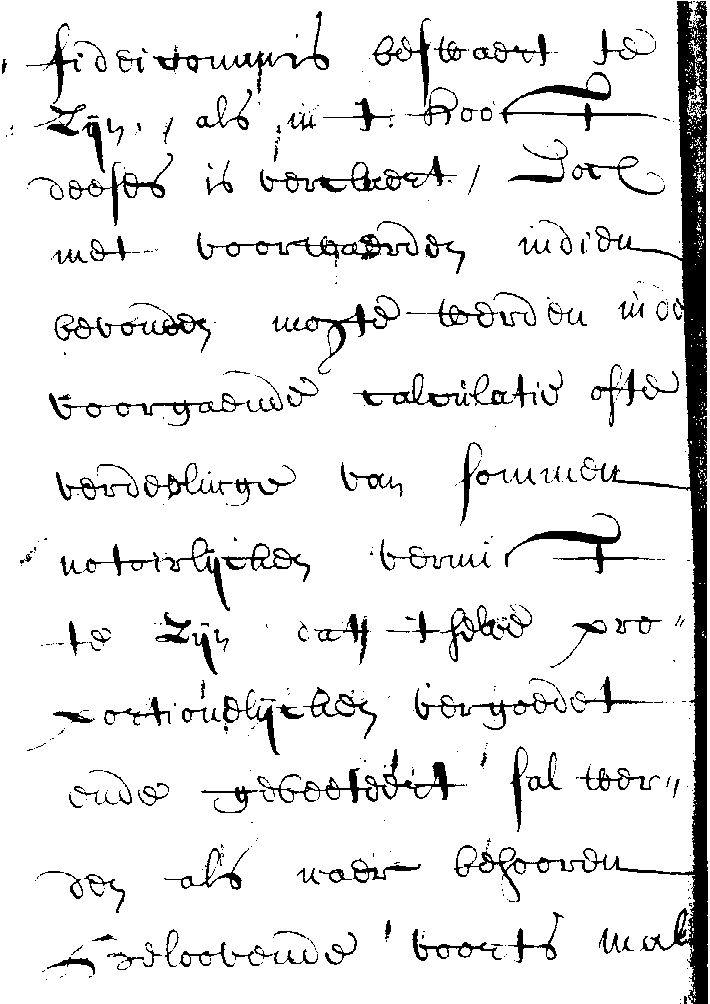 fideicommis beswaert te
Zijn, als in 't Hooft
deeses is verclaert / Doch
met voorwaerden indien
bevonden mogte werden inde
voorgaende calculatie ofte
verdeelinge van sommen
notoirlijcken vermist
te Zijn dat 't selve pro"
portionelijcken vergoedet
ende gebeetert sal wer"
den als naer behooren
Geloovende voorts mal